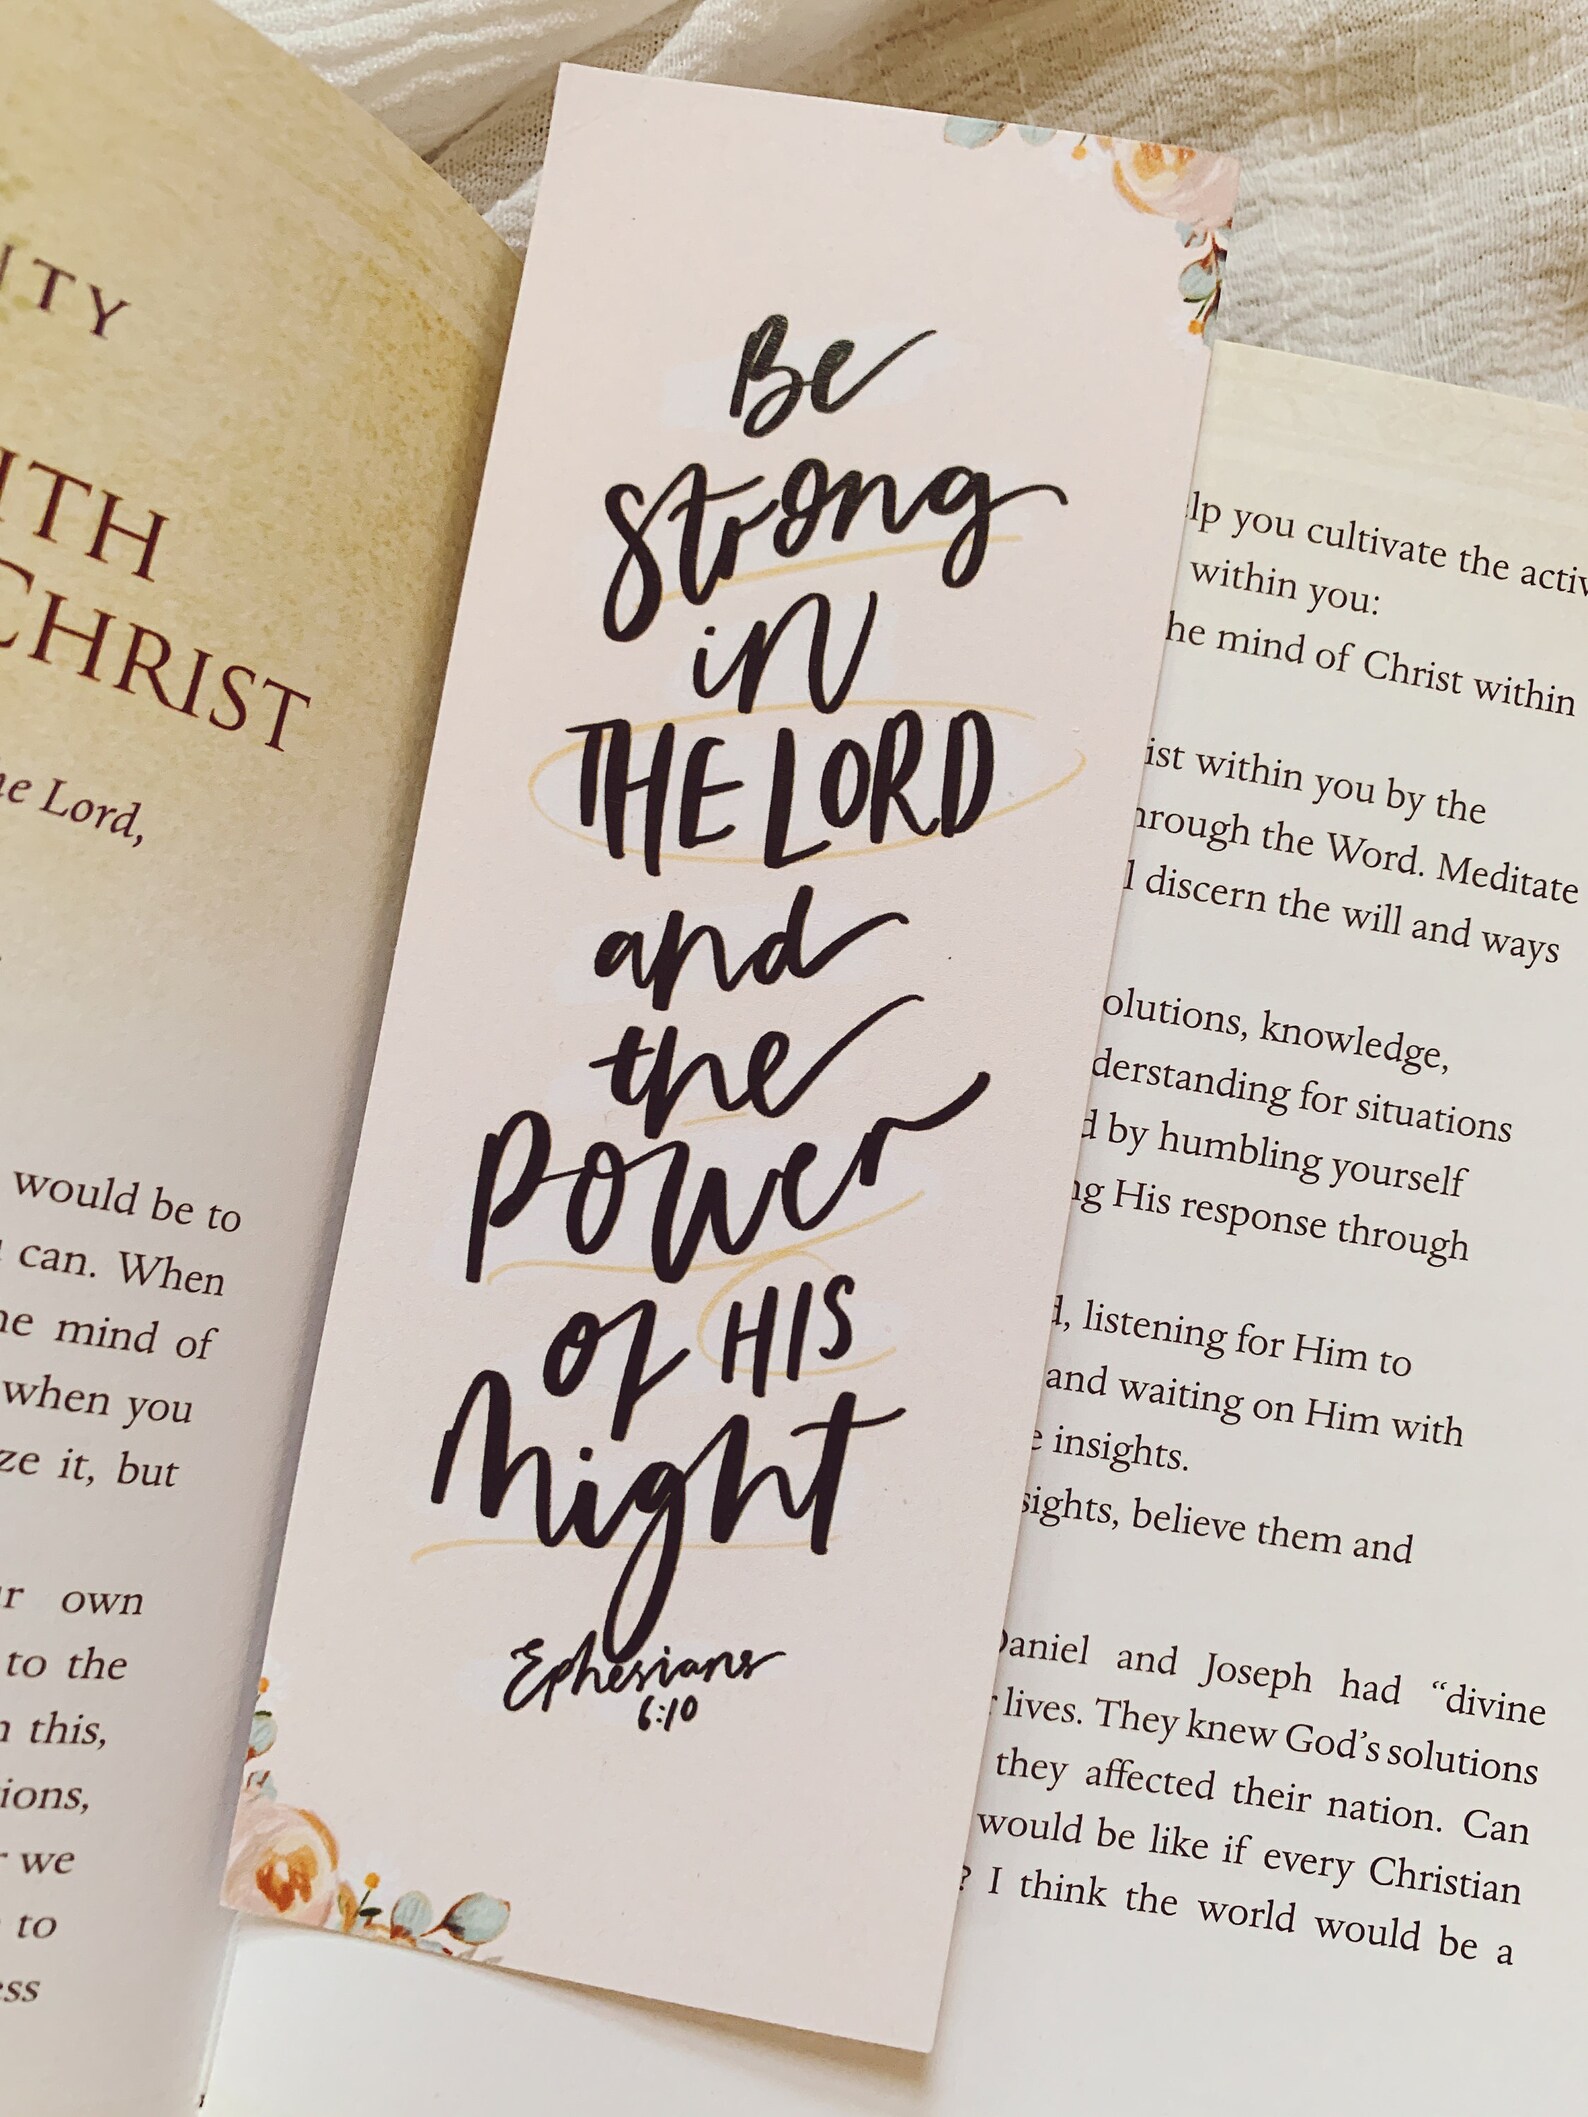 ITY
ITH
CHRIST
he Lord,
would be to
can. When
mind of
when you
it, but
own
to the
this,
we
to
Be
Strong
in
THE LORD
and
the
Power
of HIS
Might
Ephesians
6:10
you cultivate the
within you:
mind of Christ within
within you by the
through the Word. Meditate
discern the will and ways
knowledge,
for situations
by humbling yourself
His response through
listening for Him to
and waiting on Him with
insights.
believe them and
Daniel and Joseph had “divine
lives. They knew God’s solutions
they affected their nation. Can
would be like if every Christian
? I think the world would be a